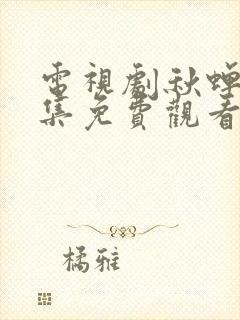 電視劇秋蟬
集免費觀看
橘雅